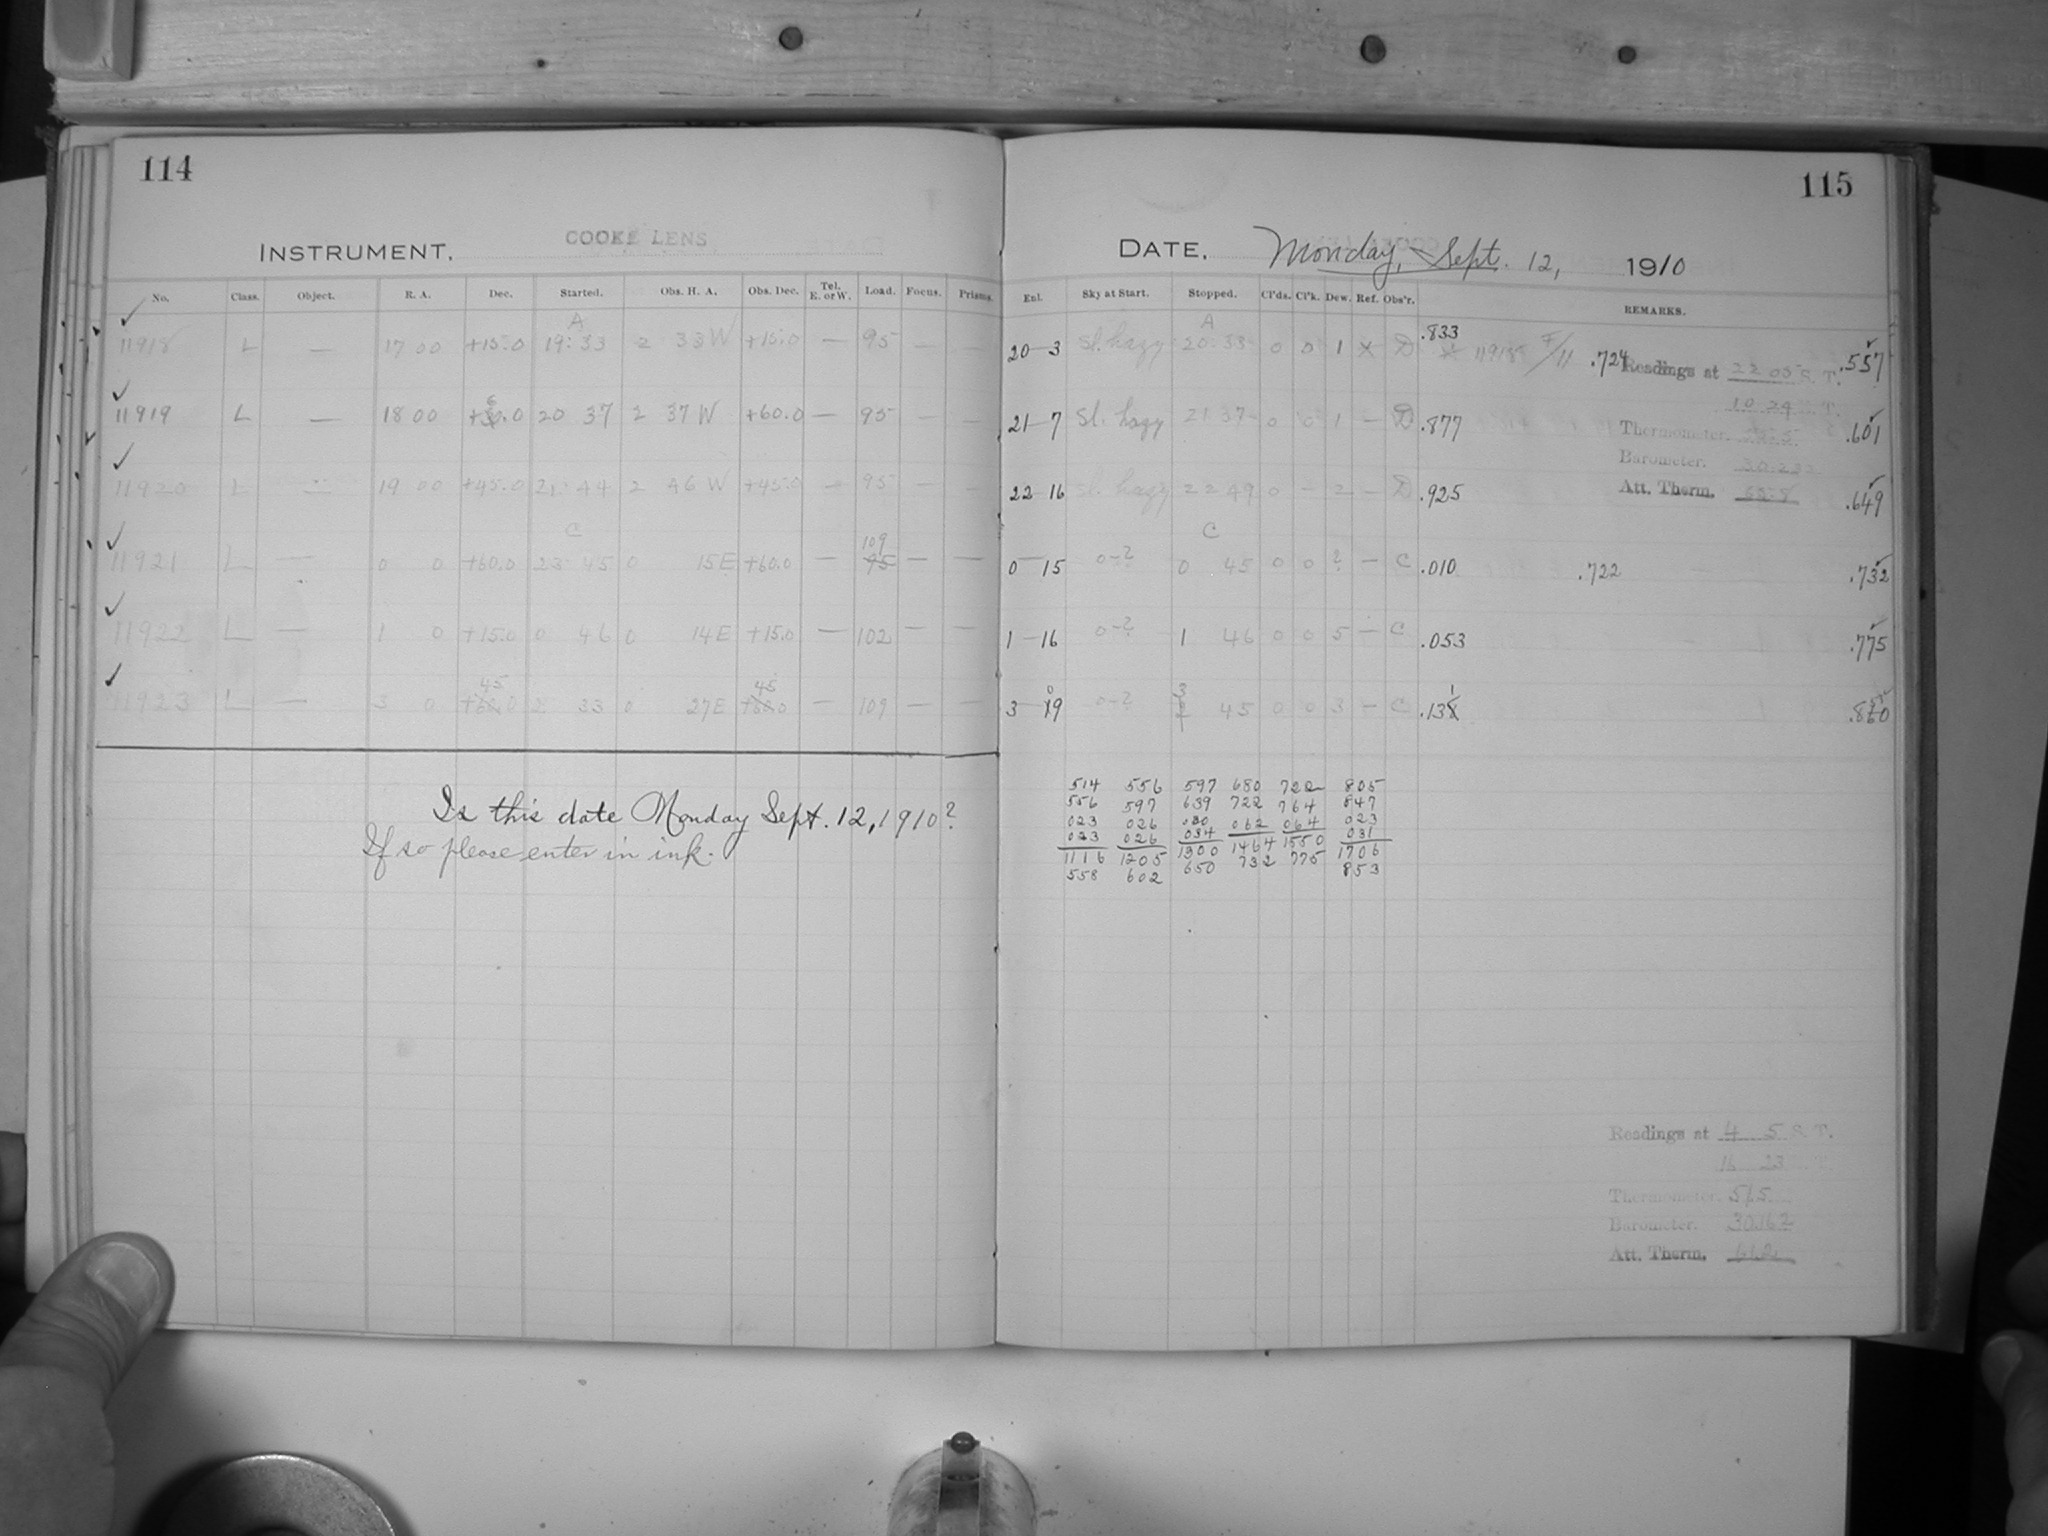 114
INSTRUMENT. COOKE LENS
No. Class. Object. R. A. Dec. Started. Obs. H. A. Obs. Dec. Tel. E. or W. Load. Focus. Prisms.
A
11918 L — 17 00 +15.0 19:33 2 33 W +15.0 — 95 — —
11919 L — 18 00 +60.0 20 37 2 37 W +60.0 — 95 — —
11920 L — 19 00 +45.0 21 44 2 46 W +45.0 — 95
C
109
11921 L — 0 0 +60.0 23 45 0 15 E +60.0 — 95 — —
11922 L — 1 0 +15.0 0 46 0 14 E +15.0 — 102 — —
45 45
11923 L — 3 0 +60.0 2 33 0 27 E +60.0 — 109 — —
Is this date Monday Sept. 12, 1910?
If so please enter in ink.
115
DATE. Monday, Sept. 12, 1910
Enl. Sky at Start. Stopped. Cl'ds. Cl'k. Dew. Ref. Obs'r. REMARKS.
A
20 3 Sl. hazy 20 33 0 0 1 X D .833 X 11918 F/11 .724 .557
Readings at 22 05 S. T.
10 29 T.
21 7 Sl. hazy 21 37 0 0 1 — D .877 .601
Thermometer.
Barometer.
22 16 Sl. hazy 22 49 0 — 2 — D .925 .649
Att. Therm.
C
0 15 0-? 0 45 0 0 ? — C .010 .722 .732
1 16 0-? 1 46 0 0 5 — C .053 .775
3 19 0-? 3 45 0 0 3 — C .138 .860
514 556 597 680 722 805
556 597 639 722 764 847
023 026 030 062 064 023
023 026 034 031
1116 1205 1300 1464 1550 1706
558 602 650 732 775 853
Readings at 4 5 S. T.
16 23 T.
Thermometer. 51.5
Barometer. 30.162
Att. Therm. 61.2